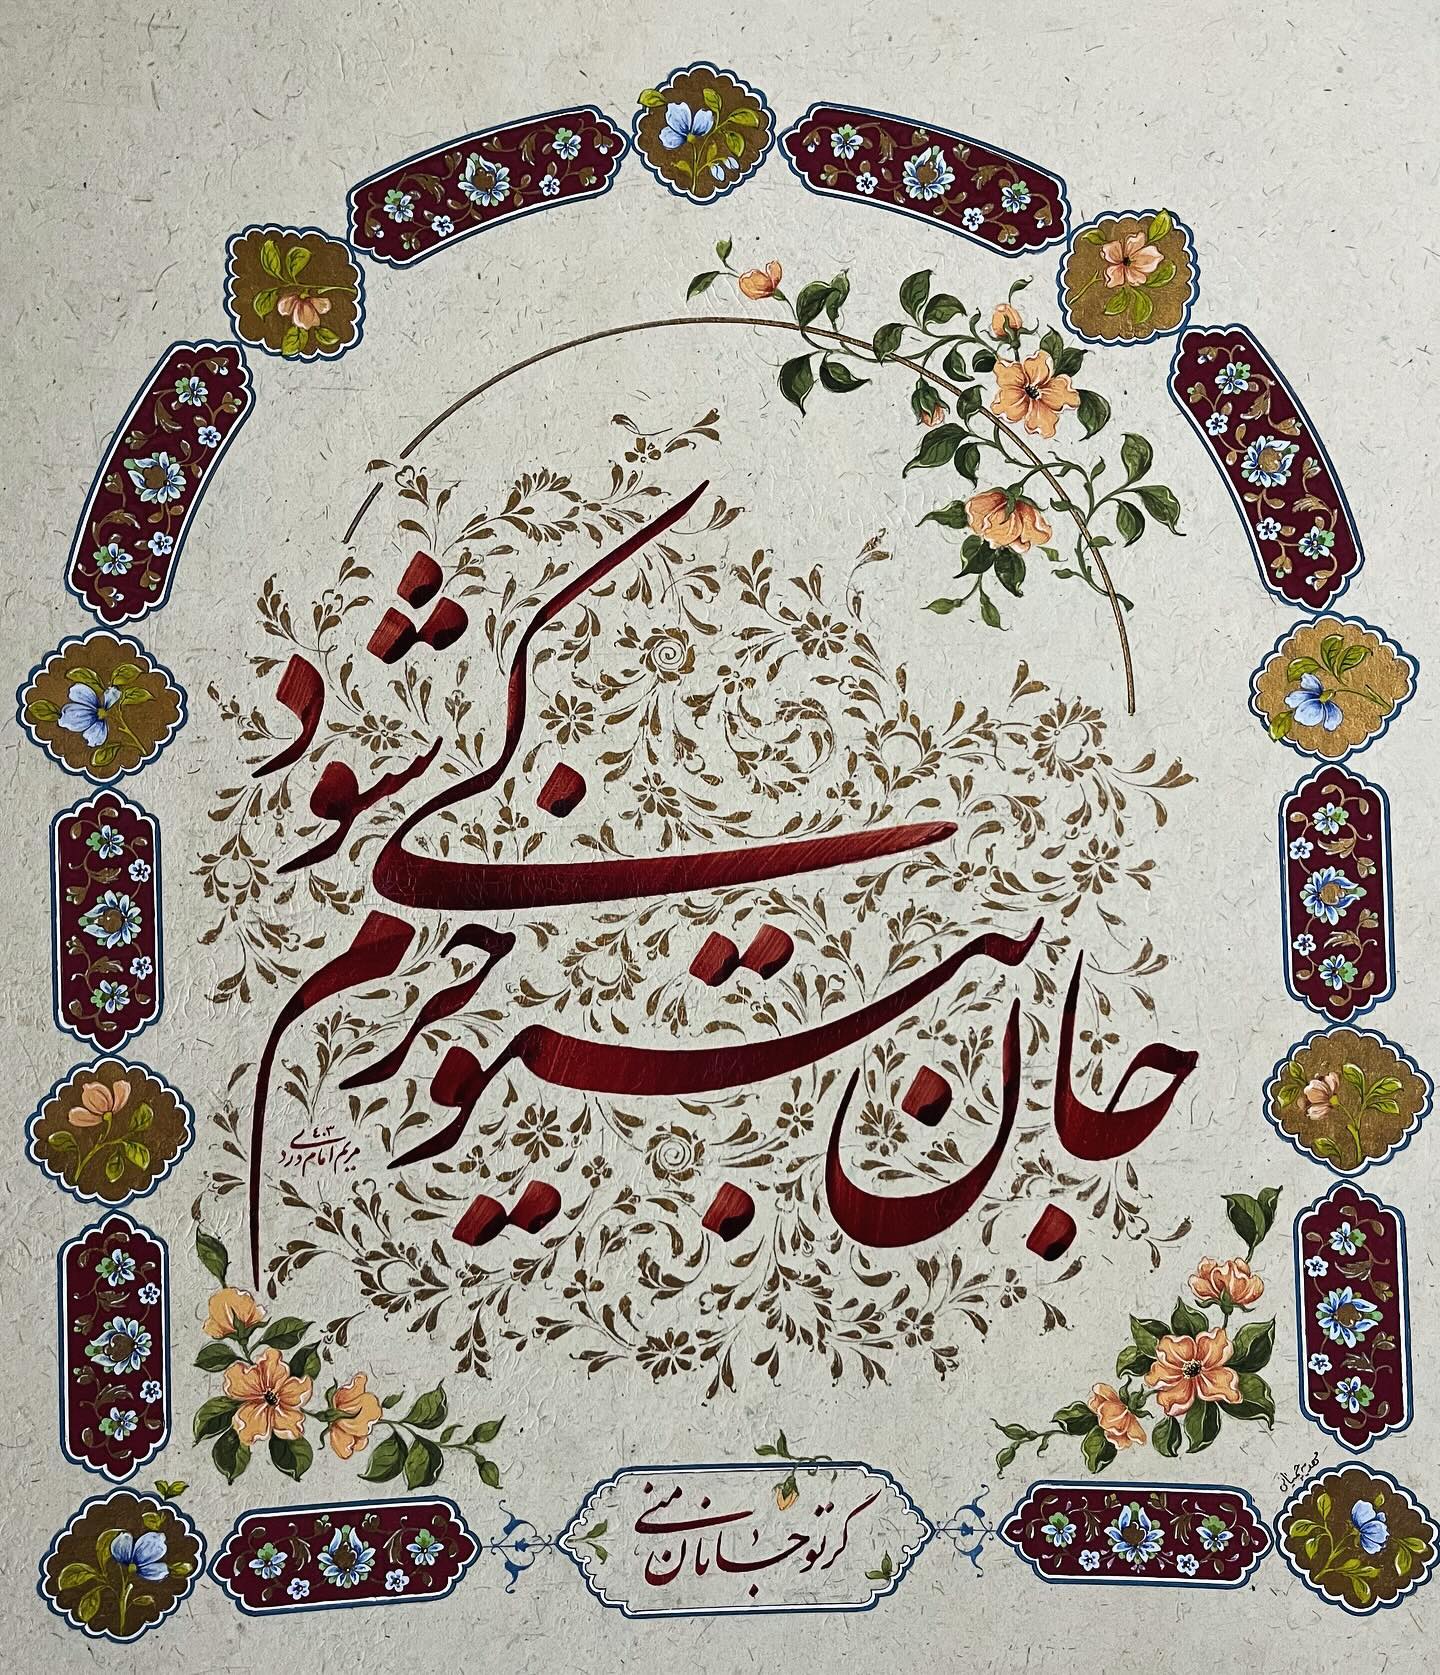 جان بیتو خرم کی شود
۴۰۳
مریم امام وردی
گر تو جانان منی